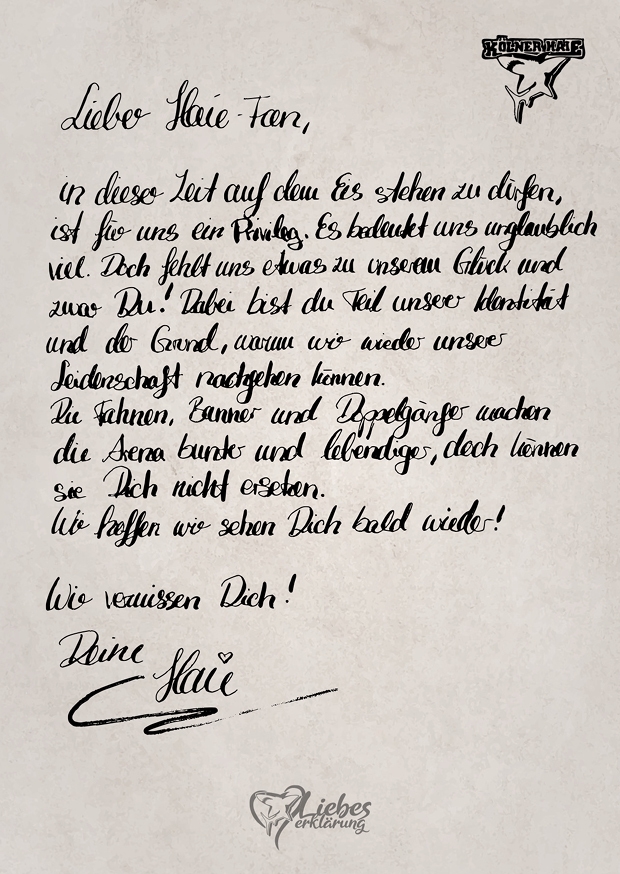 KÖLNER HAIE
Lieber Haie-Fan,
in dieser Zeit auf dem Eis stehen zu dürfen,
ist für uns ein Privileg. Es bedeutet uns unglaublich
viel. Doch fehlt uns etwas zu unserem Glück und
zwar Du! Dabei bist du Teil unserer Identität
und der Grund, warum wir wieder unserer
Leidenschaft nachgehen können.
Die Fahnen, Banner und Doppelgänger machen
die Arena bunter und lebendiger, doch können
sie Dich nicht ersetzen.
Wir hoffen wir sehen Dich bald wieder!
Wir vermissen Dich!
Deine
Haie
Liebes
erklärung